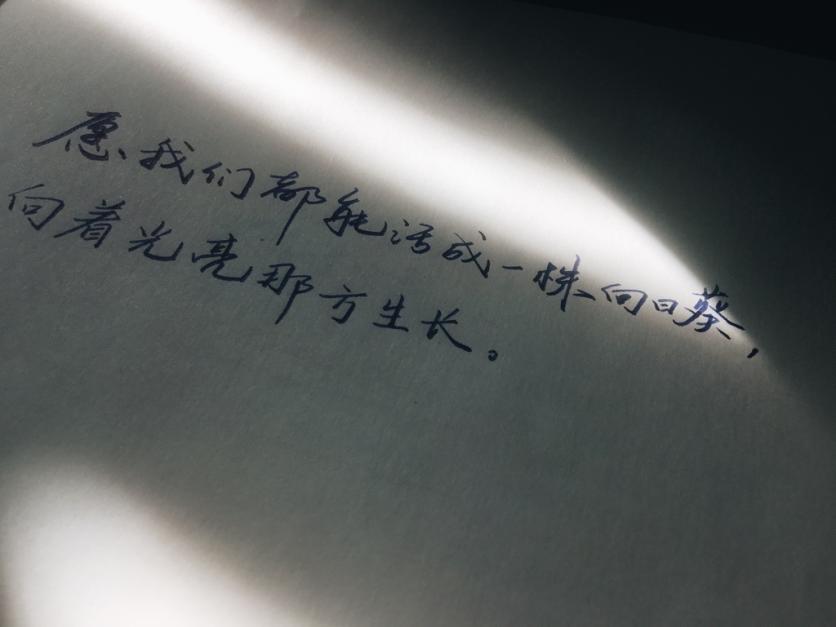 愿我们都能活成一株向日葵，
向着光亮那方生长。